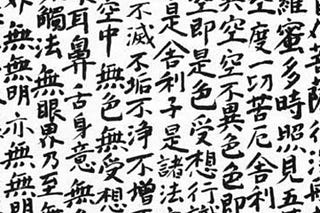 在菩薩行深
羅蜜多時照見五
空度一切苦厄舍利
異空空不異色色即
空即是色受想行識
是舍利子是諸法
不滅不垢不淨不增
空中無色無受想
耳鼻舌身意無
觸法無眼界乃至無
界無無明亦無無明